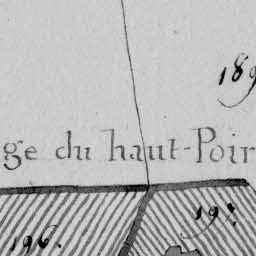 189
ge du haut-Poir
197.
196.